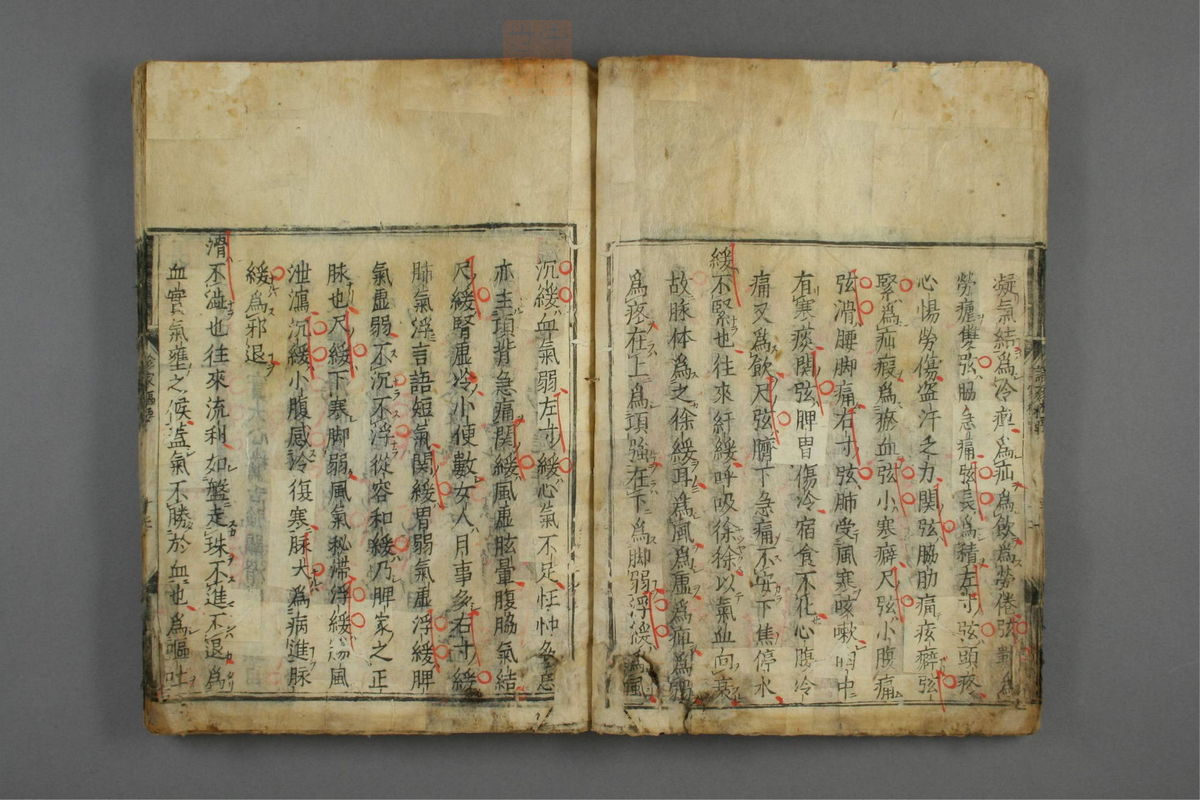 凝氣結爲冷痺爲疝爲飲爲勞倦弦數爲
勞瘧雙弦脇急痛弦長爲積左寸弦頭疼
心惕勞傷盗汗乏力関弦脇肋痛痃癖弦
緊爲疝瘕爲瘀血弦小寒癖尺弦小腹痛
弦滑腰脚痛右寸弦肺受風寒咳嗽胷中
有寒痰関弦脾胃傷冷宿食不化心腹冷
痛又爲飲尺弦臍下急痛不安下焦停水
緩不緊也往來紆緩呼吸徐徐以氣血向衰
故脉体爲之徐緩耳爲風爲虚爲痺爲弱
爲疼在上爲項強在下爲脚弱浮緩爲風
沉緩血氣弱左寸緩心氣不足怔忡多忘
亦主項背急痛関緩風虚眩暈腹脇氣結
尺緩腎虚冷小便數女人月事多右寸緩
肺氣浮言語短氣関緩胃弱氣虚浮緩脾
氣虚弱不沉不浮從容和緩乃脾家之正
脉也尺緩下寒脚弱風氣秘滯浮緩腸風
泄瀉沉緩小腹感冷復寒脉大爲病進脉
緩爲邪退
滑不澁也往來流利如盤走珠不進不退爲
血實氣壅之候盖氣不勝於血也爲嘔吐